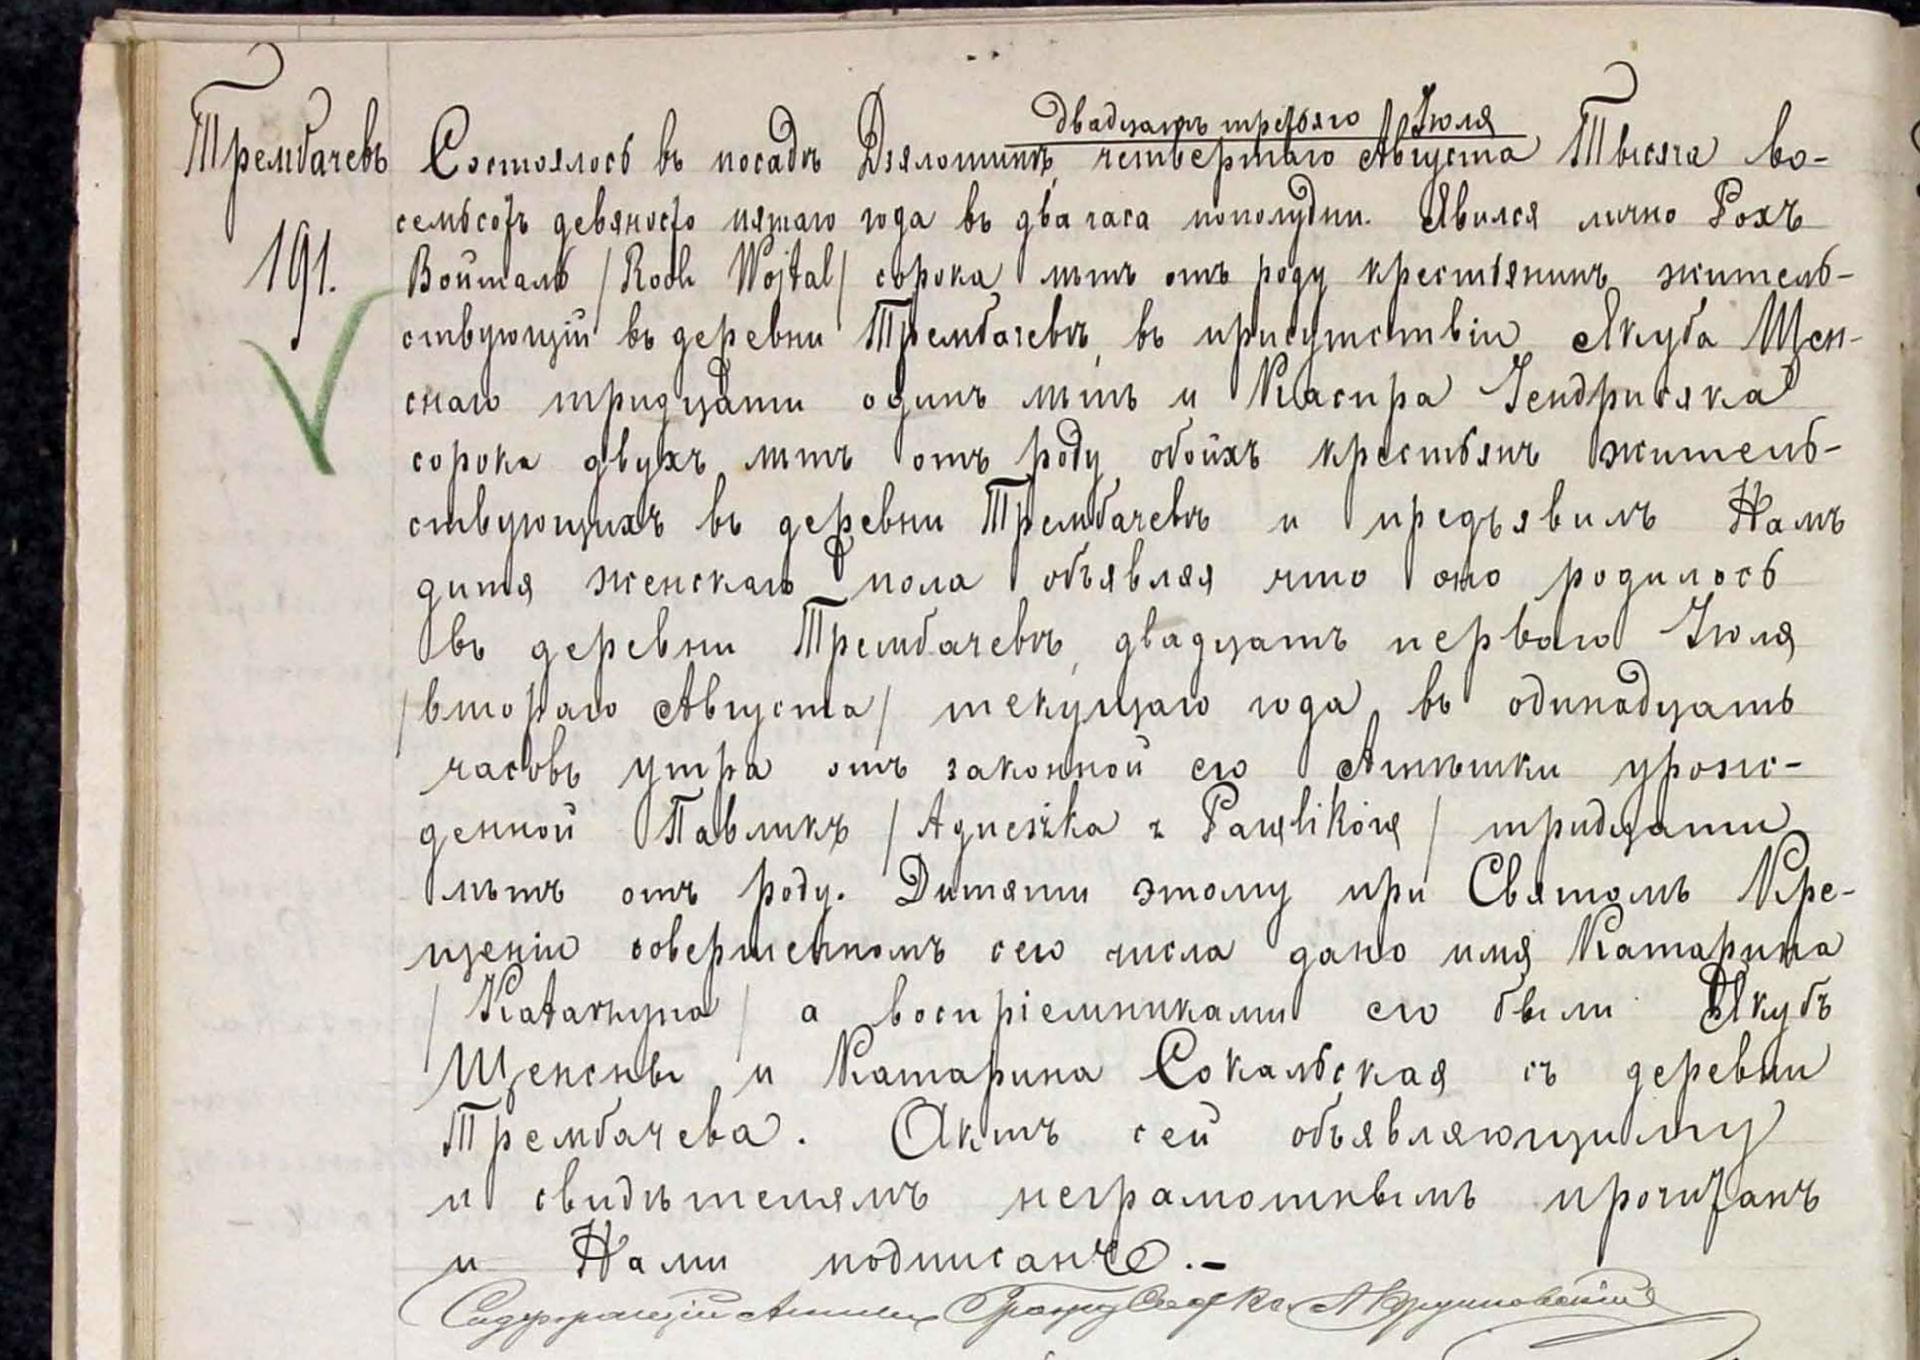 Трембачевъ
191.
двадцать третьяго Іюля
Состоялось въ посадѣ Дзялошинѣ, четвертаго Августа Тысяча во-
семьсотъ девяносто пятаго года въ два часа пополудни. Явился лично Рохъ
Войталь /Roch Wojtal/ сорока лѣтъ отъ роду крестьянинъ житель-
ствующій въ деревни Трембачевѣ, въ присутствіи Якуба Щен-
снаго тридцати одинъ лѣтъ и Каспра Іендрисяка
сорока двухъ лѣтъ отъ роду обоихъ крестьянъ житель-
ствующихъ въ деревни Трембачевѣ и предъявилъ Намъ
дитя женскаго пола объявляя что оно родилось
въ деревни Трембачевѣ, двадцать перваго Іюля
/втораго Августа/ текущаго года въ одинадцать
часовъ утра отъ законной его Агнѣшки урож-
денной Павликъ /Agnieszka z Pawlików/ тридцати
лѣтъ отъ роду. Дитяти этому при Святомъ Кре-
щеніи совершенномъ сего числа дано имя Катарина
/Katarzyna/ а воспріемниками его были Якубъ
Щенсны и Катарина Сокальская съ деревни
Трембачева. Актъ сей объявляющиму
и свидѣтелямъ неграмотнымъ прочитанъ
и Нами подписанъ.-